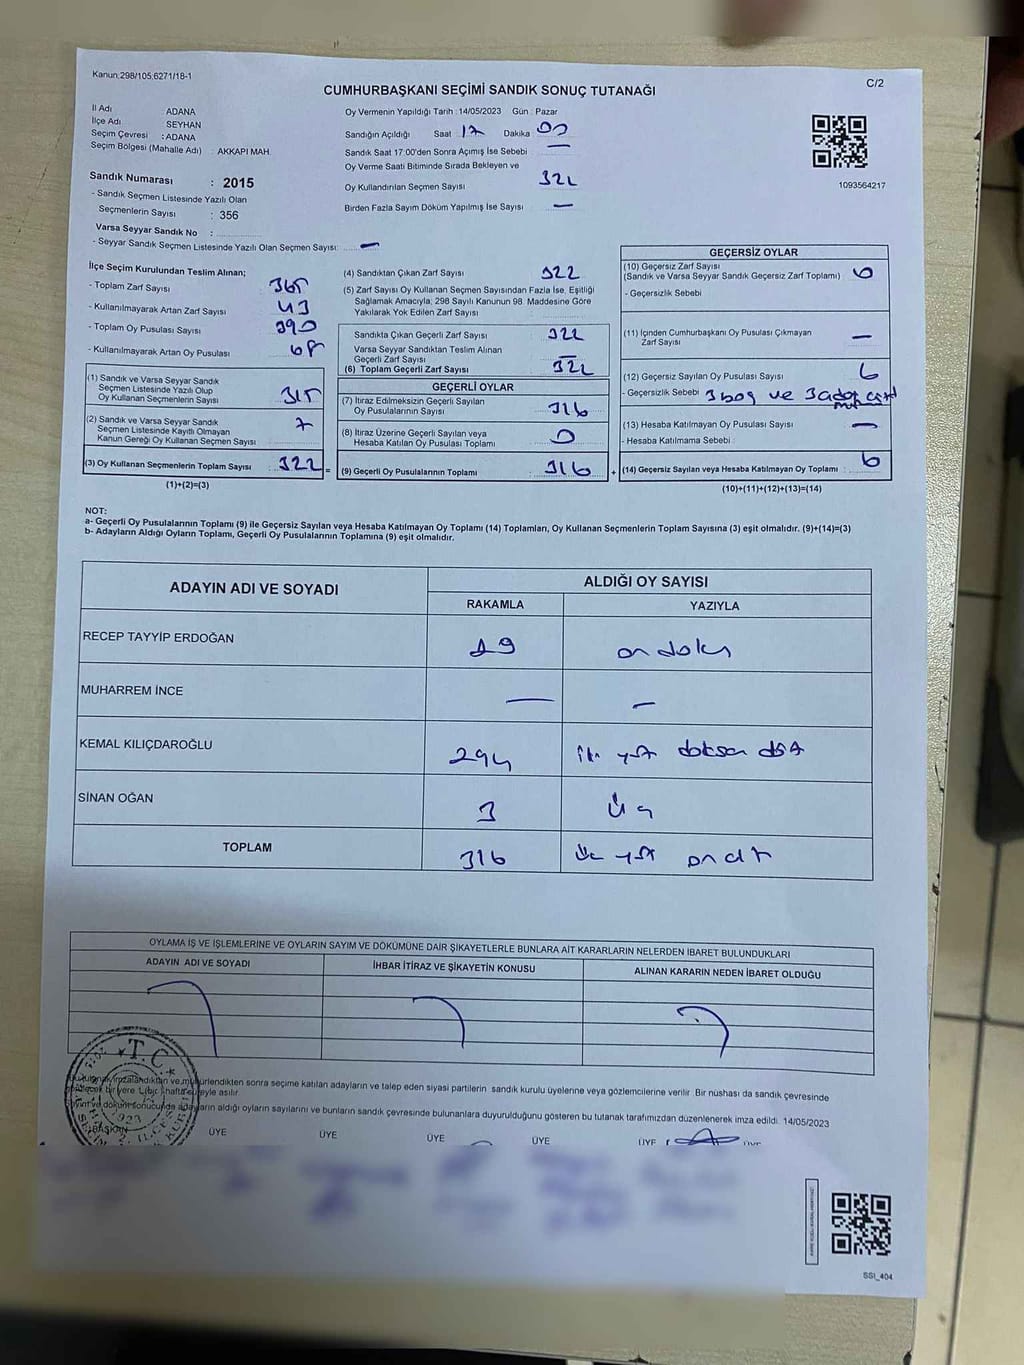 Kanun:298/105;6271/18-1
C/2
CUMHURBAŞKANI SEÇİMİ SANDIK SONUÇ TUTANAĞI
İl Adı : ADANA
İlçe Adı : SEYHAN
Seçim Çevresi : ADANA
Seçim Bölgesi (Mahalle Adı) : AKKAPI MAH.
Sandık Numarası : 2015
- Sandık Seçmen Listesinde Yazılı Olan
Seçmenlerin Sayısı : 356
Varsa Seyyar Sandık No :
- Seyyar Sandık Seçmen Listesinde Yazılı Olan Seçmen Sayısı: —
Oy Vermenin Yapıldığı Tarih : 14/05/2023 Gün : Pazar
Sandığın Açıldığı Saat 17 Dakika 00
Sandık Saat 17:00'den Sonra Açımış İse Sebebi —
Oy Verme Saati Bitiminde Sırada Bekleyen ve
Oy Kullandırılan Seçmen Sayısı 322
Birden Fazla Sayım Döküm Yapılmış İse Sayısı —
1093564217
İlçe Seçim Kurulundan Teslim Alınan;
- Toplam Zarf Sayısı 365
- Kullanılmayarak Artan Zarf Sayısı 43
- Toplam Oy Pusulası Sayısı 390
- Kullanılmayarak Artan Oy Pusulası 68
(1) Sandık ve Varsa Seyyar Sandık
Seçmen Listesinde Yazılı Olup
Oy Kullanan Seçmenlerin Sayısı 315
(2) Sandık ve Varsa Seyyar Sandık
Seçmen Listesinde Kayıtlı Olmayan
Kanun Gereği Oy Kullanan Seçmen Sayısı 7
(3) Oy Kullanan Seçmenlerin Toplam Sayısı : 322 =
(1)+(2)=(3)
(4) Sandıktan Çıkan Zarf Sayısı 322
(5) Zarf Sayısı Oy Kullanan Seçmen Sayısından Fazla İse, Eşitliği
Sağlamak Amacıyla; 298 Sayılı Kanunun 98. Maddesine Göre
Yakılarak Yok Edilen Zarf Sayısı
Sandıkta Çıkan Geçerli Zarf Sayısı 322
Varsa Seyyar Sandıktan Teslim Alınan
Geçerli Zarf Sayısı —
(6) Toplam Geçerli Zarf Sayısı 322
GEÇERLİ OYLAR
(7) İtiraz Edilmeksizin Geçerli Sayılan
Oy Pusulalarının Sayısı 316
(8) İtiraz Üzerine Geçerli Sayılan veya
Hesaba Katılan Oy Pusulası Toplamı 0
(9) Geçerli Oy Pusulalarının Toplamı 316 +
GEÇERSİZ OYLAR
(10) Geçersiz Zarf Sayısı
(Sandık ve Varsa Seyyar Sandık Geçersiz Zarf Toplamı) 0
- Geçersizlik Sebebi
(11) İçinden Cumhurbaşkanı Oy Pusulası Çıkmayan
Zarf Sayısı —
(12) Geçersiz Sayılan Oy Pusulası Sayısı 6
- Geçersizlik Sebebi 3 boş ve 3
(13) Hesaba Katılmayan Oy Pusulası Sayısı —
- Hesaba Katılmama Sebebi :
(14) Geçersiz Sayılan veya Hesaba Katılmayan Oy Toplamı : 6
(10)+(11)+(12)+(13)=(14)
NOT:
a- Geçerli Oy Pusulalarının Toplamı (9) ile Geçersiz Sayılan veya Hesaba Katılmayan Oy Toplamı (14) Toplamları, Oy Kullanan Seçmenlerin Toplam Sayısına (3) eşit olmalıdır. (9)+(14)=(3)
b- Adayların Aldığı Oyların Toplamı, Geçerli Oy Pusulalarının Toplamına (9) eşit olmalıdır.
ADAYIN ADI VE SOYADI
ALDIĞI OY SAYISI
RAKAMLA YAZIYLA
RECEP TAYYİP ERDOĞAN 19 on dokuz
MUHARREM İNCE — —
KEMAL KILIÇDAROĞLU 294 iki yüz doksan dört
SİNAN OĞAN 3 üç
TOPLAM 316 üç yüz on altı
OYLAMA İŞ VE İŞLEMLERİNE VE OYLARIN SAYIM VE DÖKÜMÜNE DAİR ŞİKAYETLERLE BUNLARA AİT KARARLARIN NELERDEN İBARET BULUNDUKLARI
ADAYIN ADI VE SOYADI İHBAR İTİRAZ VE ŞİKAYETİN KONUSU ALINAN KARARIN NEDEN İBARET OLDUĞU
T.C.
imzalandıktan ve mühürlendikten sonra seçime katılan adayların ve talep eden siyasi partilerin sandık kurulu üyelerine veya gözlemcilerine verilir. Bir nüshası da sandık çevresinde
bir yere 1 bir hafta süreyle asılır
ve döküm sonucunda adayların aldığı oyların sayılarını ve bunların sandık çevresinde bulunanlara duyurulduğunu gösteren bu tutanak tarafımızdan düzenlenerek imza edildi. 14/05/2023
BAŞKAN ÜYE ÜYE ÜYE ÜYE ÜYE ÜYE
SSI_404